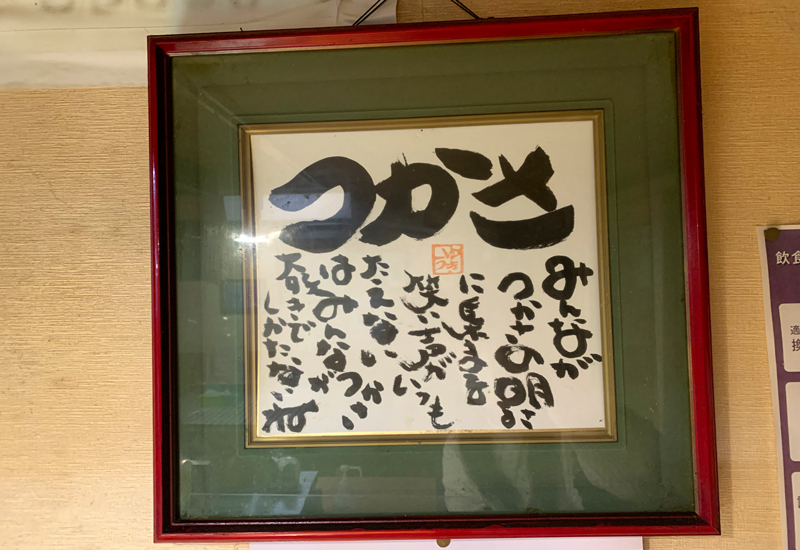 つかさ
みんなが
つかさの明るさ
に集まる
笑い声がいつも
たえない つかさ
はみんなが
大好きで
しかたないね
飲食